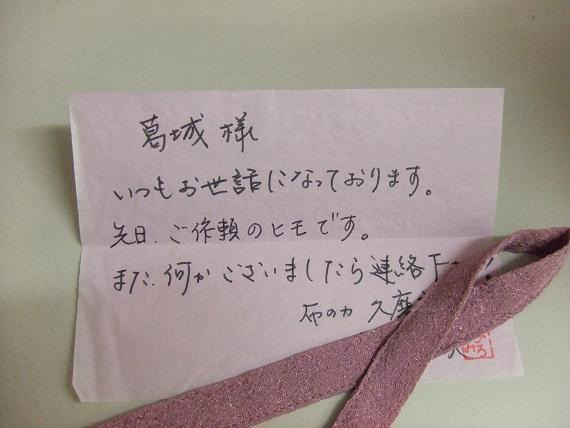 葛城様
いつもお世話になっております。
先日、ご依頼のヒモです。
また、何かございましたら連絡下
布の力 久
みろ